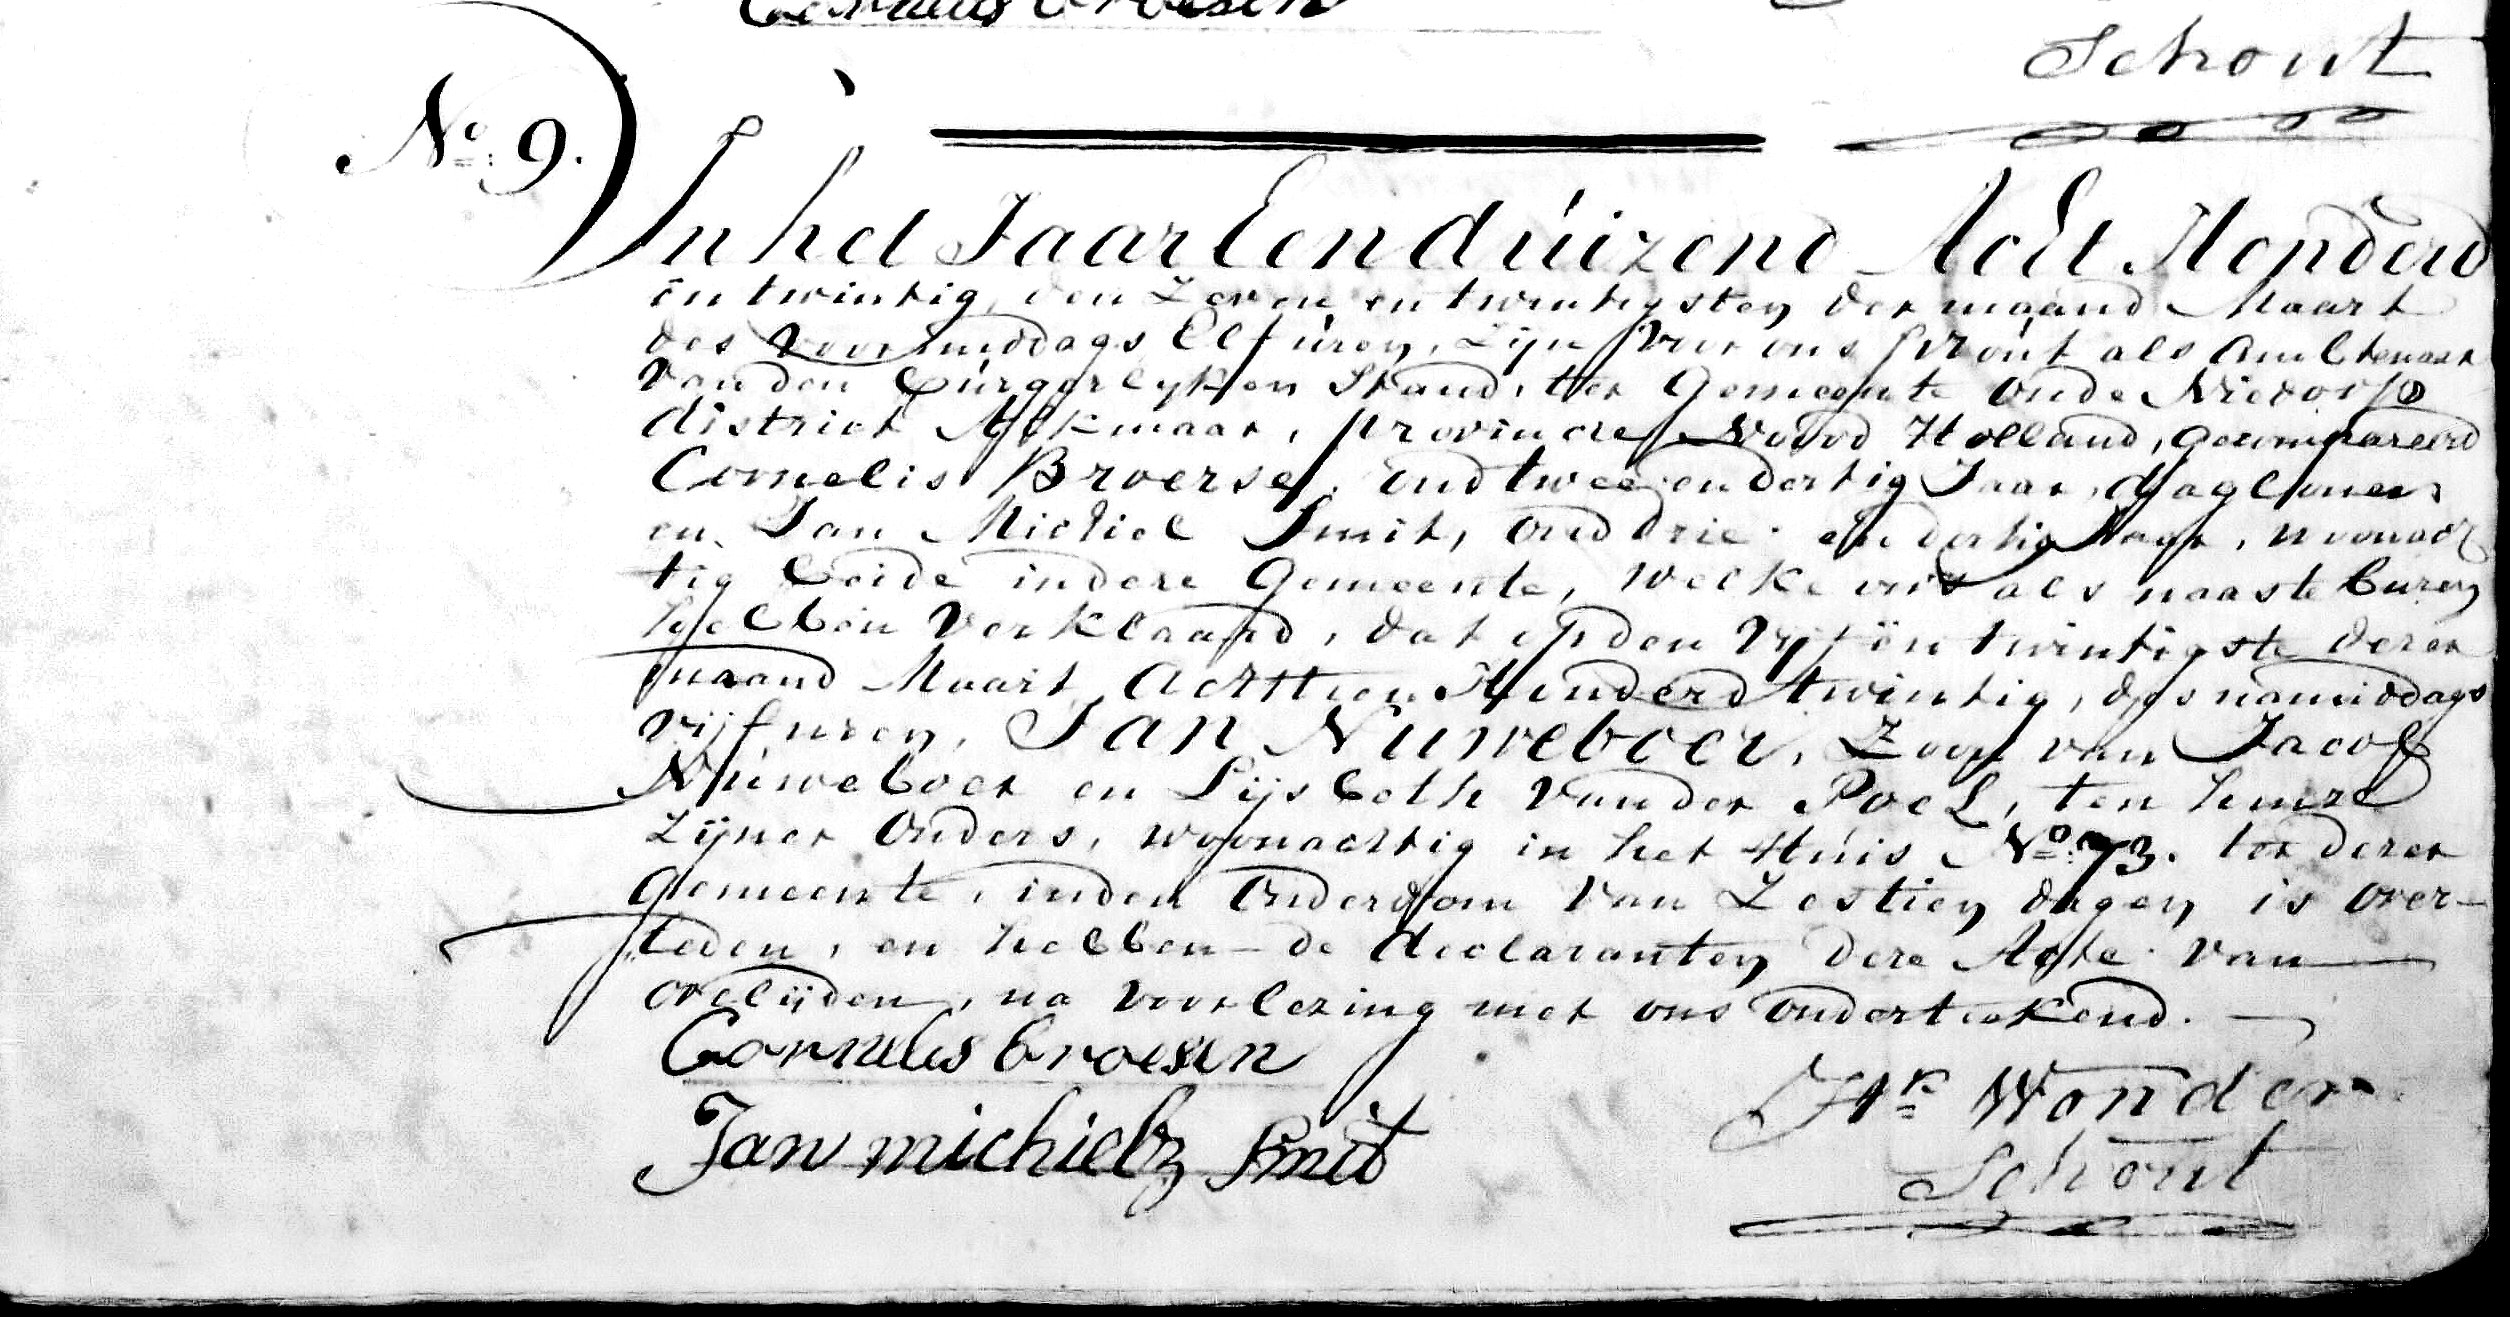 Cornelis broesen
Schout
No. 9.
In het Jaar Eenduizend Acht Honderd
en twintig, den Zeven en twintigsten der maand Maart
des voormiddags Elf uren, Zijn voor ons Schout als Ambtenaar
van den Burgerlyken Stand, ter Gemeente Oude Niedorp
district Alkmaar, provincie Noord Holland, gecompareerd
Cornelis Broerse, oud twee en dertig Jaar, dagloner
en Jan Michiel Smit, oud drie en dertig Jaar, woonach
tig beide in deze Gemeente, welke ons als naaste buren
hebben verklaard, dat op den vijf en twintigste dezer
maand Maart Achttien Hunderd twintig, des namiddags
vijf uren, Jan Nuweboer, Zoon van Jacob
Nuweboer en Lijsbeth van der Poel, ten huize
Zijner Ouders, woonachtig in het Huis No. 73. ter dezer
Gemeente, in den Ouderdom van Zestien dagen is over-
leden, en hebben de declaranten deze Acte van
overlijden, na voorlezing met ons ondertekend.
Cornelis broesen
Jan michielz Smit
Jr. Wonder
Schout